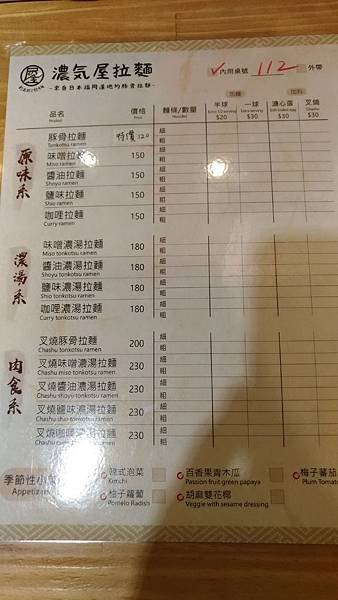 濃気屋拉麵
~來自日本福岡道地的豚骨拉麵~
✓內用桌號 112 外帶
加麵 加料
品名 價格 麵條/數量 半球 一球 溏心蛋 叉燒
Product Price Noodles
$20 $30 $30 $30
原味系
豚骨拉麵 特價120 細 粗
Tonkotsu ramen
味噌拉麵 150 細 粗
Miso ramen
醬油拉麵 150 細 粗
Shoyu ramen
鹽味拉麵 150 細 粗
Shio ramen
咖哩拉麵 150 細 粗
Curry ramen
濃湯系
味噌濃湯拉麵 180 細 粗
Miso tonkotsu ramen
醬油濃湯拉麵 180 細 粗
Shoyu tonkotsu ramen
鹽味濃湯拉麵 180 細 粗
Shio tonkotsu ramen
咖哩濃湯拉麵 180 細 粗
Curry tonkotsu ramen
肉食系
叉燒豚骨拉麵 200 細 粗
Chashu tonkotsu ramen
叉燒味噌濃湯拉麵 230 細 粗
Chashu miso tonkotsu ramen
叉燒醬油濃湯拉麵 230 細 粗
Chashu shoyu tonkotsu ramen
叉燒鹽味濃湯拉麵 230 細 粗
Chashu shio tonkotsu ramen
叉燒咖哩濃湯拉麵 230 細 粗
季節性小
Appetizers
韓式泡菜 百香果青木瓜 梅子蕃茄
Kimchi Passion fruit green papaya Plum Tomato
柚子蘿蔔 胡麻雙花椰
Pomelo Radish Veggie with sesame dressing